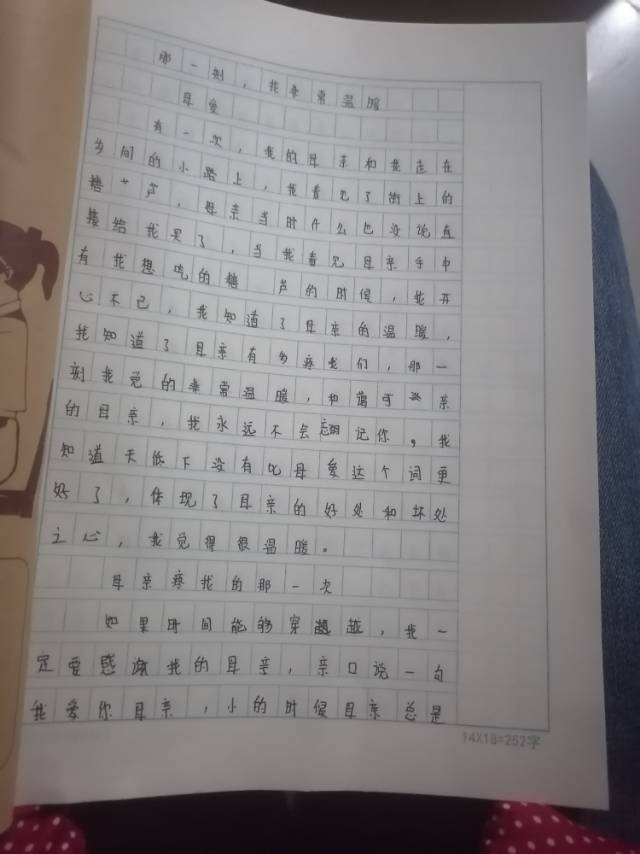 那一刻，我非常温暖
母爱
有一次，我的母亲和我走在
乡间的小路上，我看见了街上的
糖 芦，母亲当时什么也没说直
接给我买了，当我看见母亲手中
有我想吃的糖 芦的时候，我开
心不已，我知道了母亲的温暖，
我知道了母亲有多疼我们，那一
刻我觉的非常温暖，和蔼可 亲
的母亲，我永远不会忘记你，我
知道天低下没有比母爱这个词更
好了，体现了母亲的好处和坏处
之心，我觉得很温暖。
母亲疼我的那一次
如果时间能够穿越，我一
定要感谢我的母亲，亲口说一句
我爱你母亲，小的时候母亲总是
14X18=252字